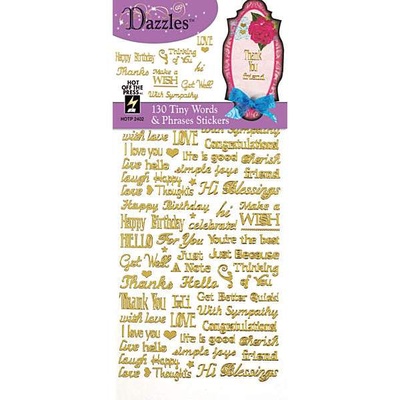 Dazzles™
LOVE
Happy Birthday
Thinking of You
Thanks
Make a WISH
hi
Get Well
With Sympathy
HOT OFF THE PRESS
HOTP 2402
Thank You
130 Tiny Words
& Phrases Stickers
wish love LOVE Congratulations!
I love you life is good Cherish
Live hello simple joys friend
Laugh Happy family
Love Thoughts Hi Blessings
Happy Birthday hi Make a WISH
Happy Birthday celebrate!
HELLO For You You're the best
Get Well Just A Note Just Because
Thanks Hello Thinking of You
Thank You hi Get Better Quick!
wish love LOVE With Sympathy
I love you life is good Congratulations!
Live hello simple joys Cherish friend
Laugh Happy family
Love Thoughts Hi Blessings